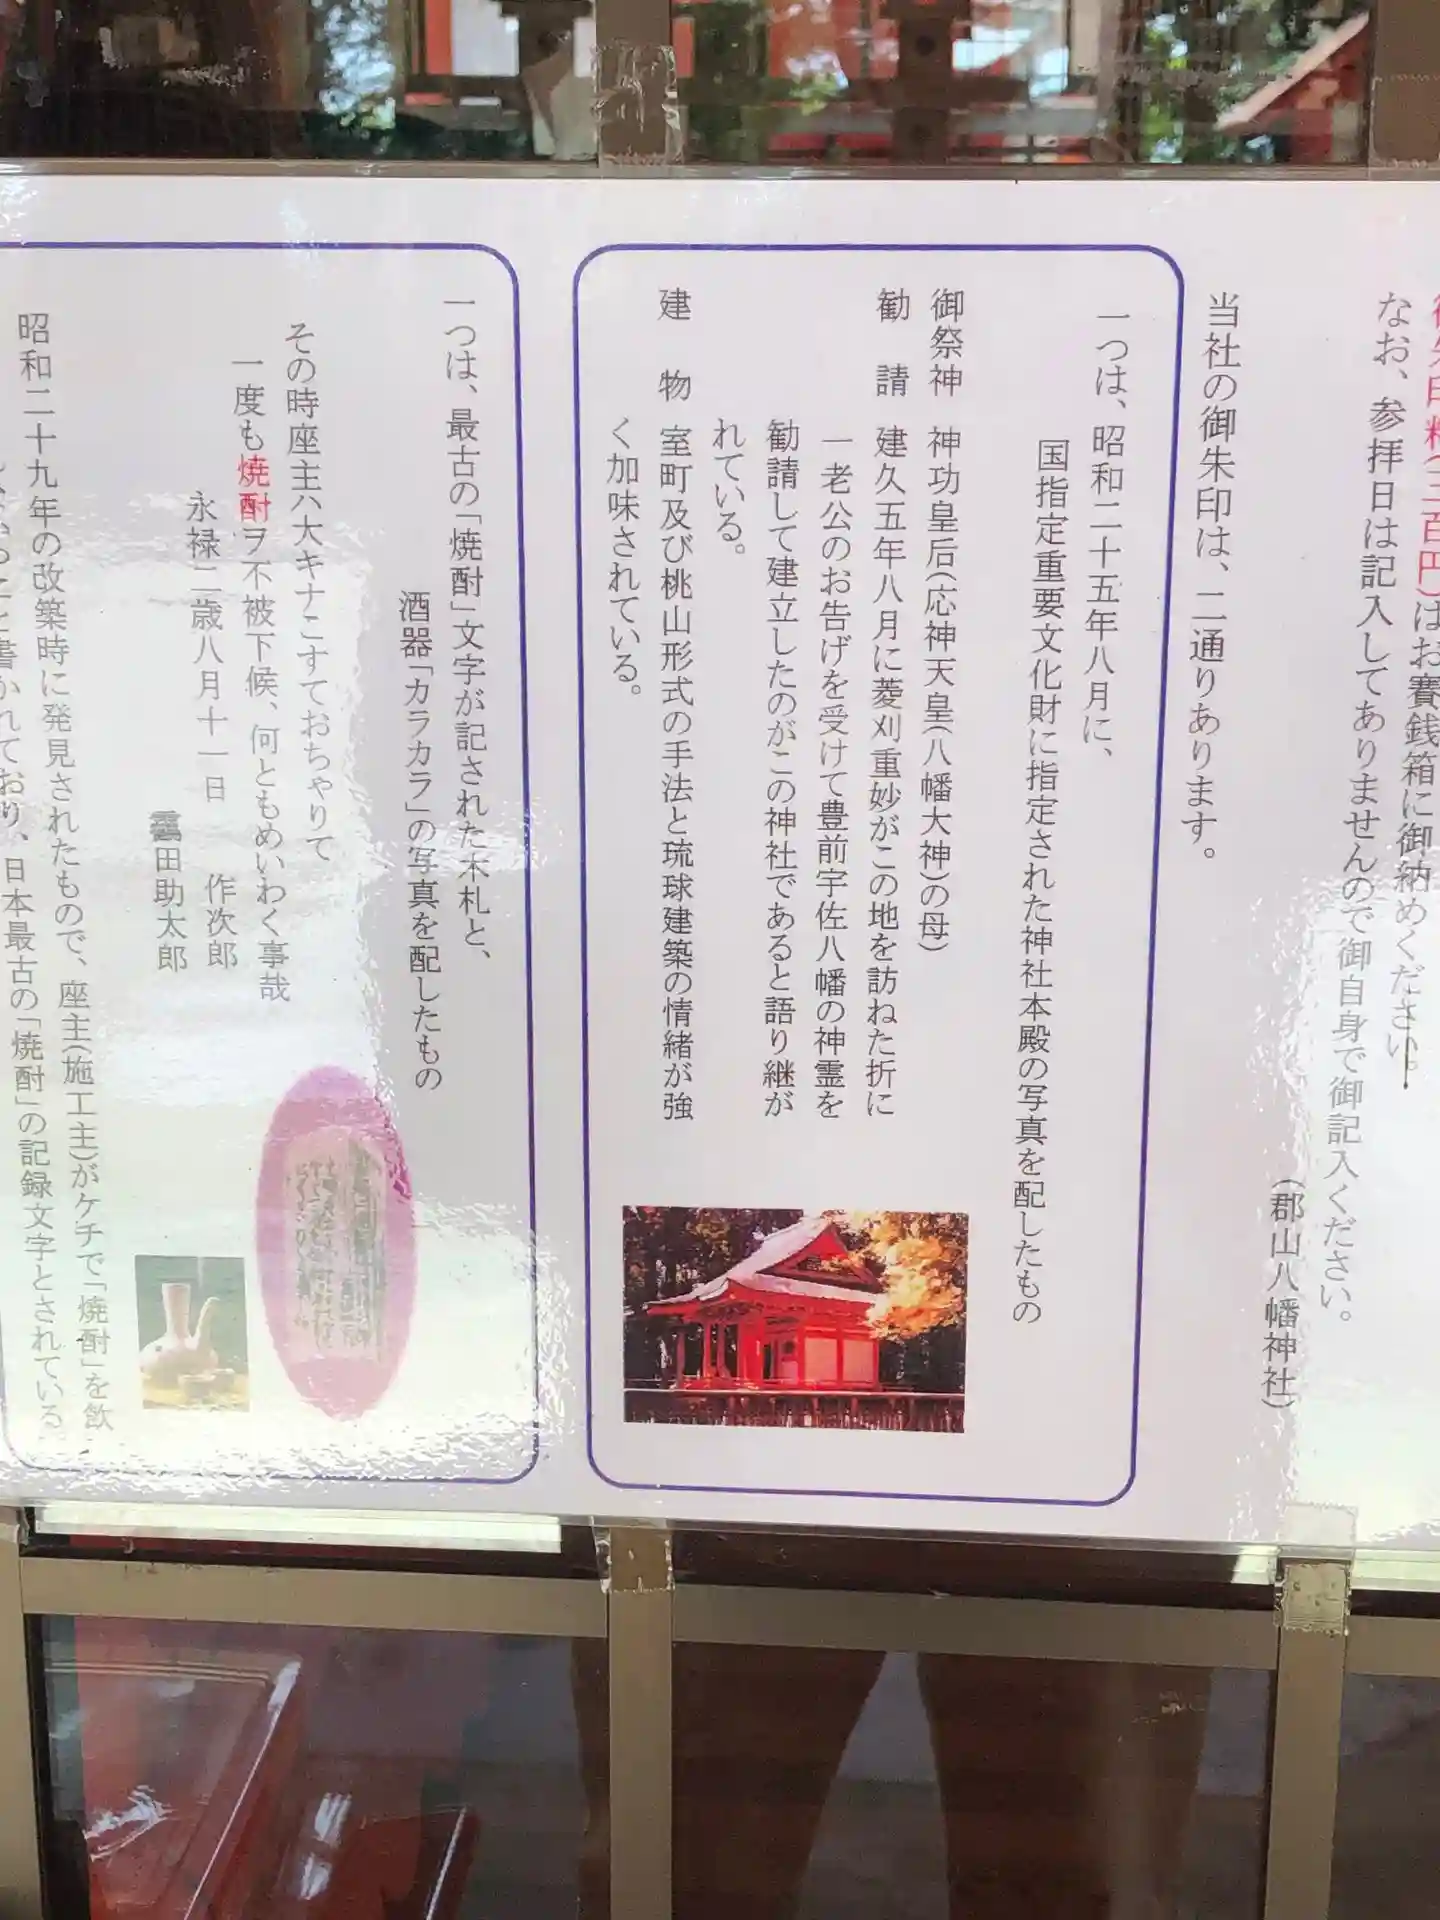 御朱印料(三百円)はお賽銭箱に御納めください。
なお、参拝日は記入してありませんので御自身で御記入ください。
(郡山八幡神社)
当社の御朱印は、二通りあります。
一つは、昭和二十五年八月に、
国指定重要文化財に指定された神社本殿の写真を配したもの
御祭神 神功皇后(応神天皇(八幡大神)の母)
勧 請 建久五年八月に菱刈重妙がこの地を訪ねた折に
一老公のお告げを受けて豊前宇佐八幡の神霊を
勧請して建立したのがこの神社であると語り継が
れている。
建 物 室町及び桃山形式の手法と琉球建築の情緒が強
く加味されている。
一つは、最古の「焼酎」文字が記された木札と、
酒器「カラカラ」の写真を配したもの
その時座主ハ大キナこすておちゃりて
一度も焼酎ヲ不被下候、何ともめいわく事哉
永禄二歳八月十一日 作次郎
靏田助太郎
昭和二十九年の改築時に発見されたもので、座主(施工主)がケチで「焼酎」を飲
書かれており、日本最古の「焼酎」の記録文字とされている。